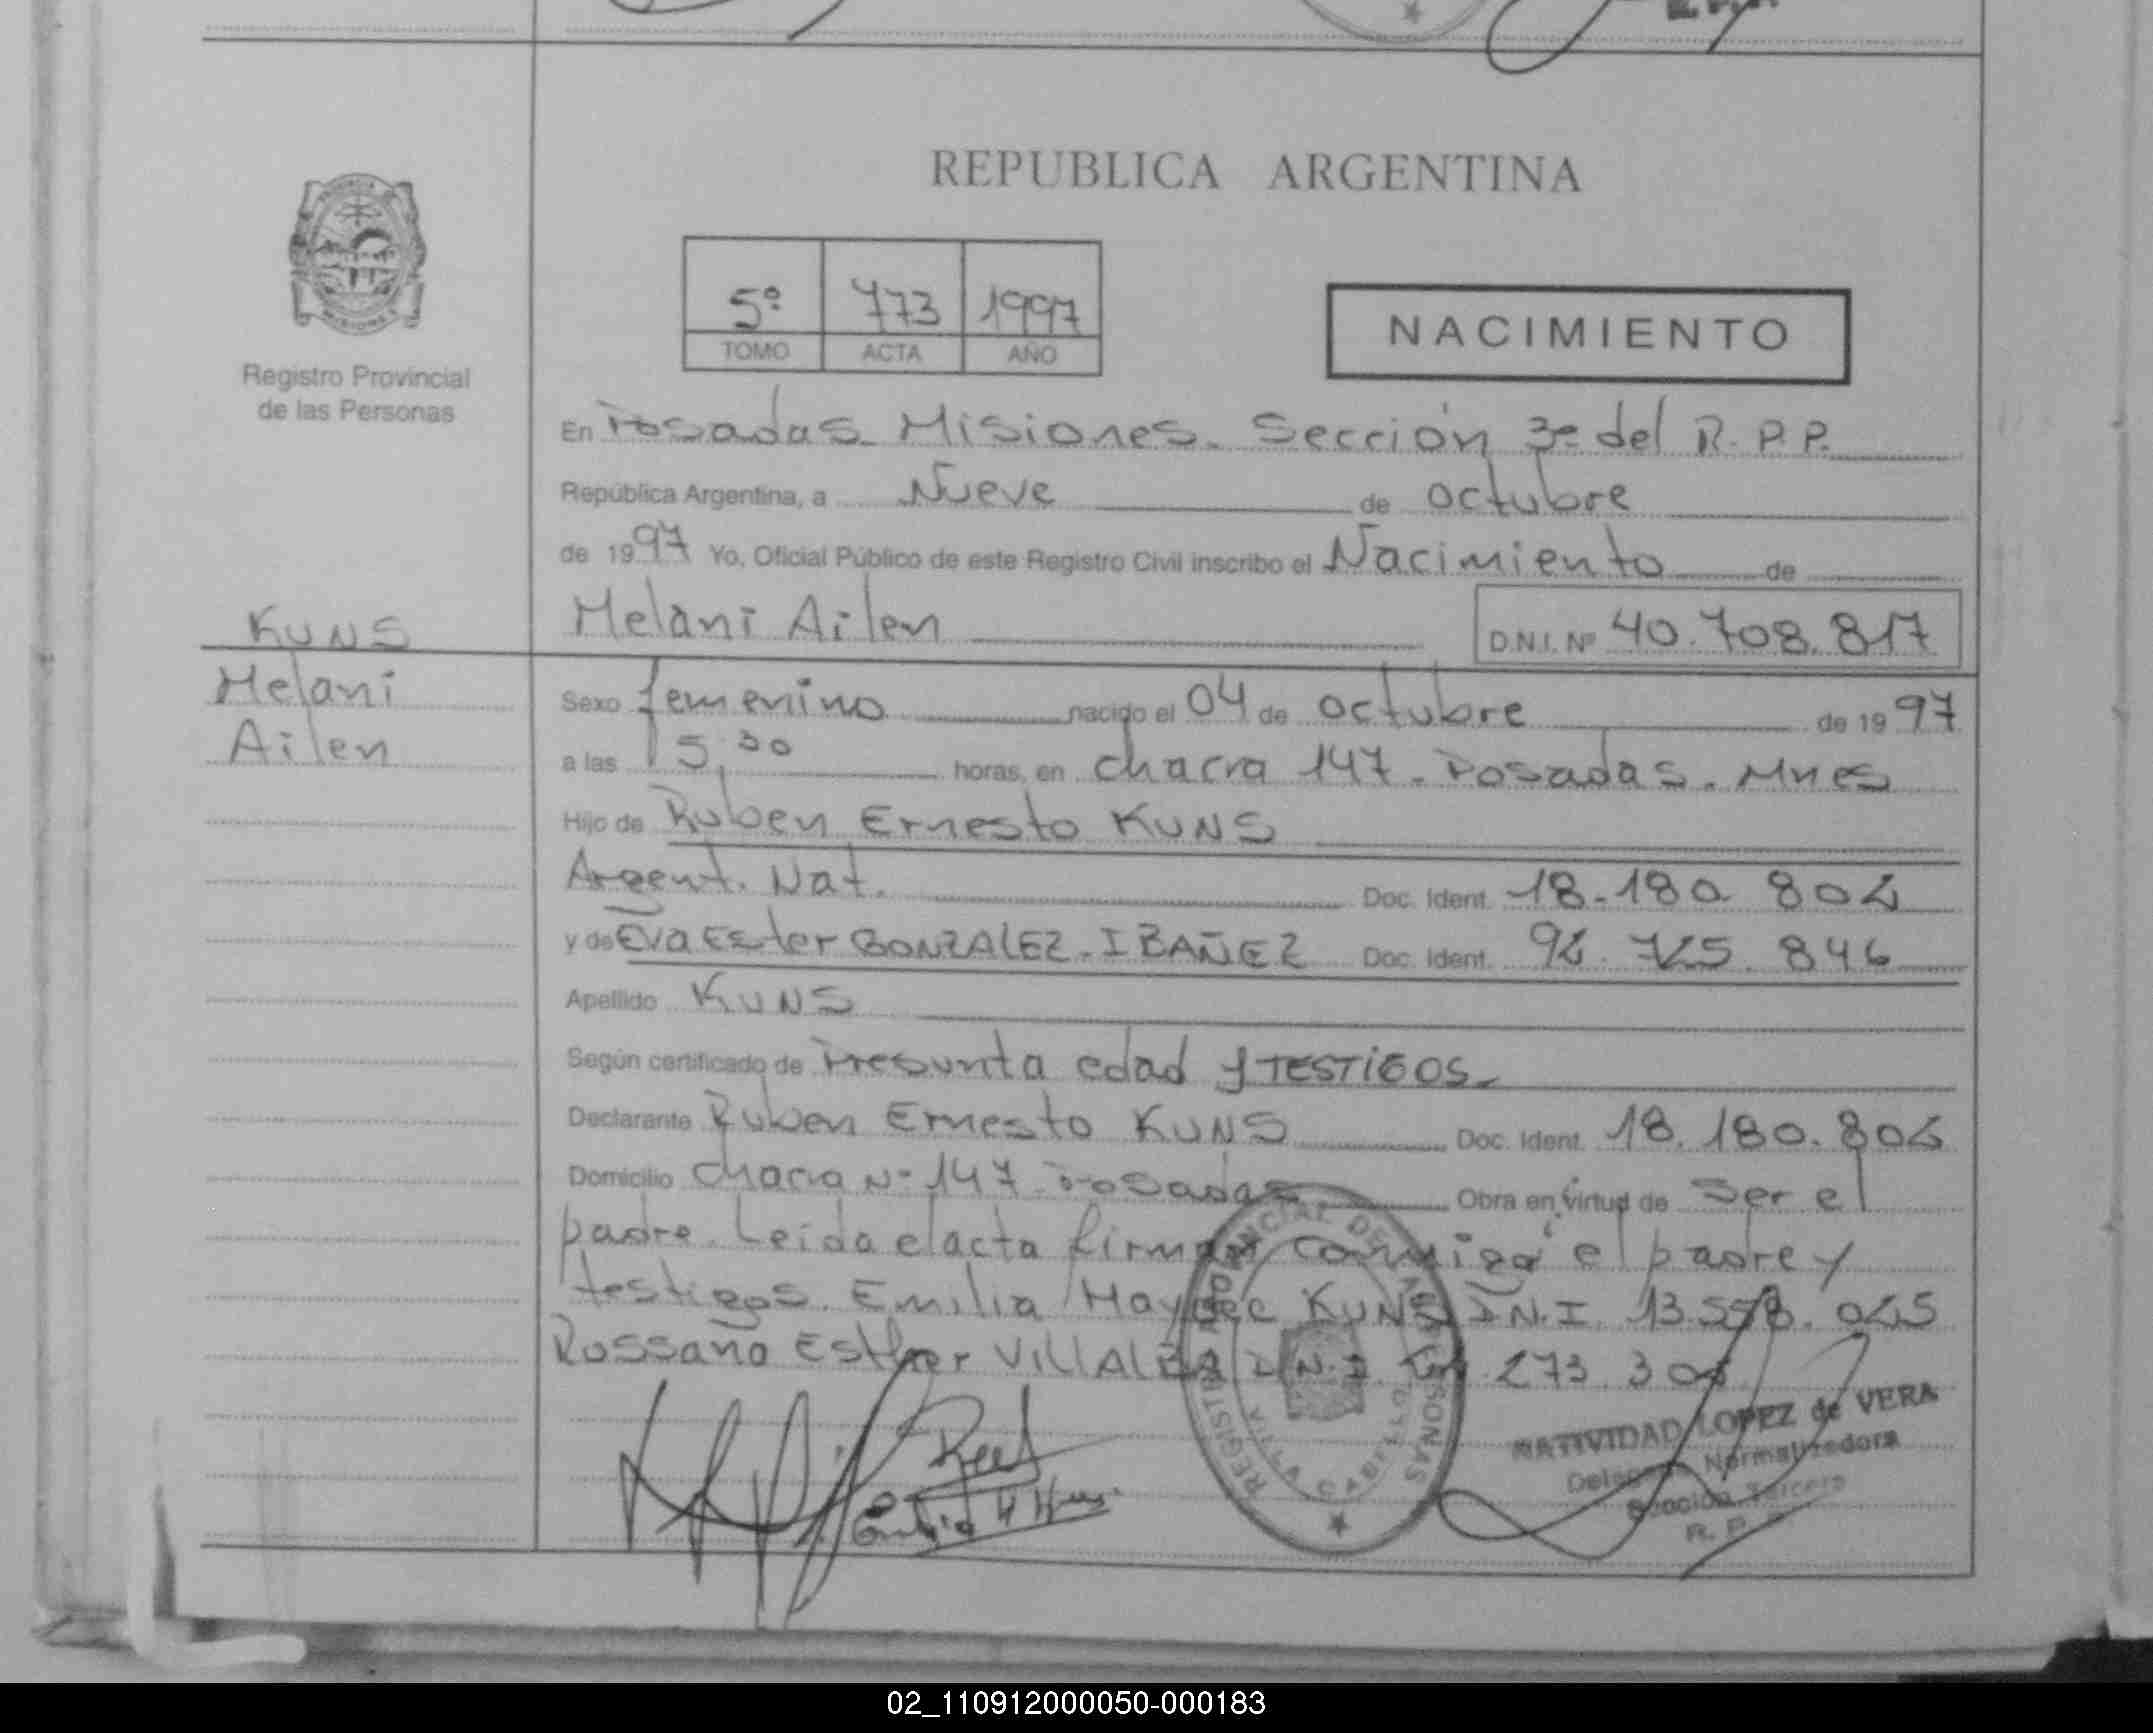 REPUBLICA ARGENTINA
5º 773 1997
TOMO ACTA AÑO
NACIMIENTO
Registro Provincial
de las Personas
En Posadas. Misiones. Sección 3º del R.P.P.
República Argentina, a Nueve de octubre
de 1997 Yo, Oficial Público de este Registro Civil inscribo el Nacimiento de
Melani Ailen D.N.I. Nº 40.708.817
KUNS
Melani
Ailen
Sexo femenino nacido el 04 de octubre de 1997
a las 15,30 horas, en chacra 147. Posadas. Mnes
Hijo de Ruben Ernesto KUNS
Argent. Nat. Doc. Ident. 18.180.804
y de Eva Ester GONZALEZ. IBAÑEZ Doc. Ident. 725.846
Apellido KUNS
Según certificado de Presunta edad y TESTIGOS.
Declarante Ruben Ernesto KUNS Doc. Ident. 18.180.804
Domicilio chacra Nº 147 Posadas Obra en virtud de Ser el
padre. Leida el acta firman conmigo el padre y
testigos. Emilia Haydee KUNS D.N.I. 13.
Rossana Esther VILLALBA D.N.I. 273
REGISTRO PROVINCIAL DE LAS PERSONAS
NATIVIDAD LOPEZ de VERA
Delegada Normalizadora
Sección Tercera
R. P. P.
02_110912000050-000183